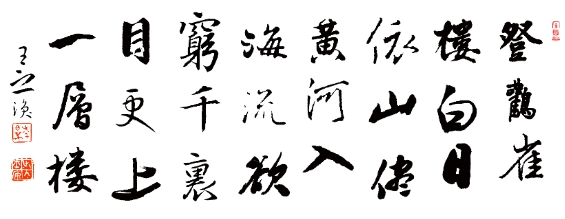 登鸛雀
樓白日
依山儘
黄河入
海流欲
窮千裏
目更上
一層楼
王之渙